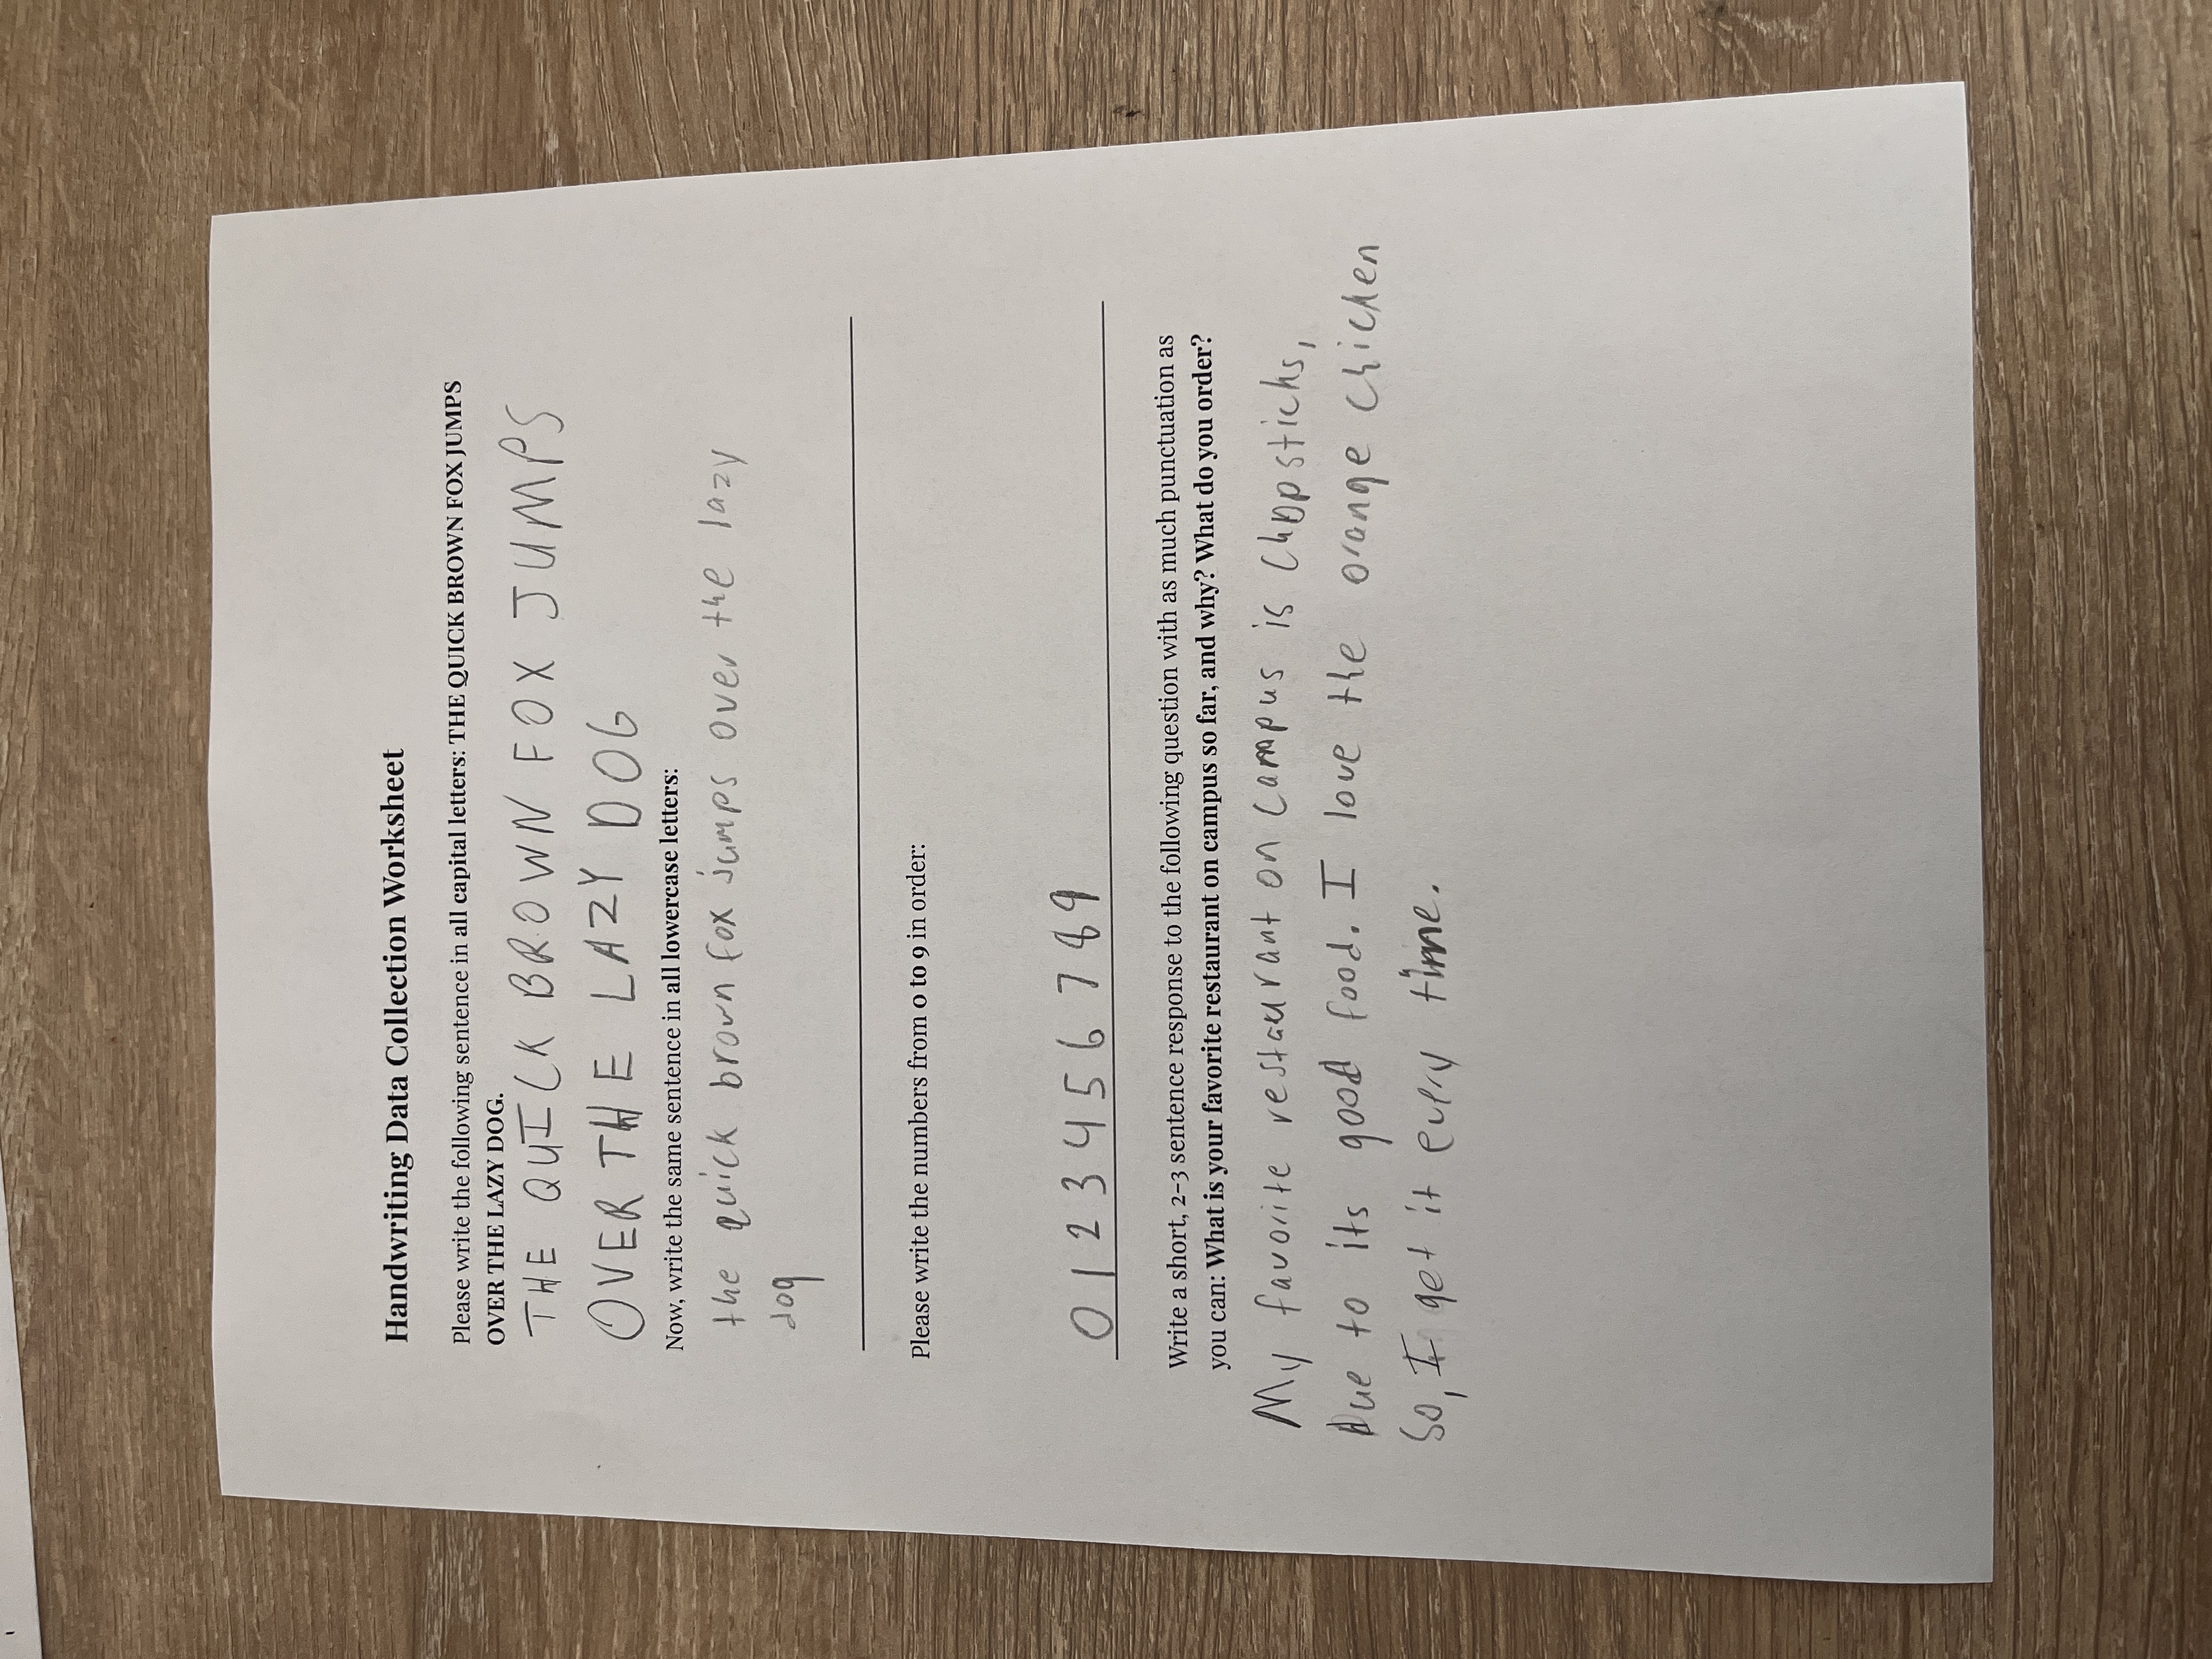 Handwriting Data Collection Worksheet
Please write the following sentence in all capital letters: THE QUICK BROWN FOX JUMPS
OVER THE LAZY DOG.
THE QUICK BROWN FOX JUMPS
OVER THE LAZY DOG
Now, write the same sentence in all lowercase letters:
the quick brown fox jumps over the lazy
dog
Please write the numbers from 0 to 9 in order:
0 1 2 3 4 5 6 7 8 9
Write a short, 2-3 sentence response to the following question with as much punctuation as
you can: What is your favorite restaurant on campus so far, and why? What do you order?
My favorite restaurant on campus is Chopsticks,
Due to its good food. I love the orange chicken
So, I get it every time.